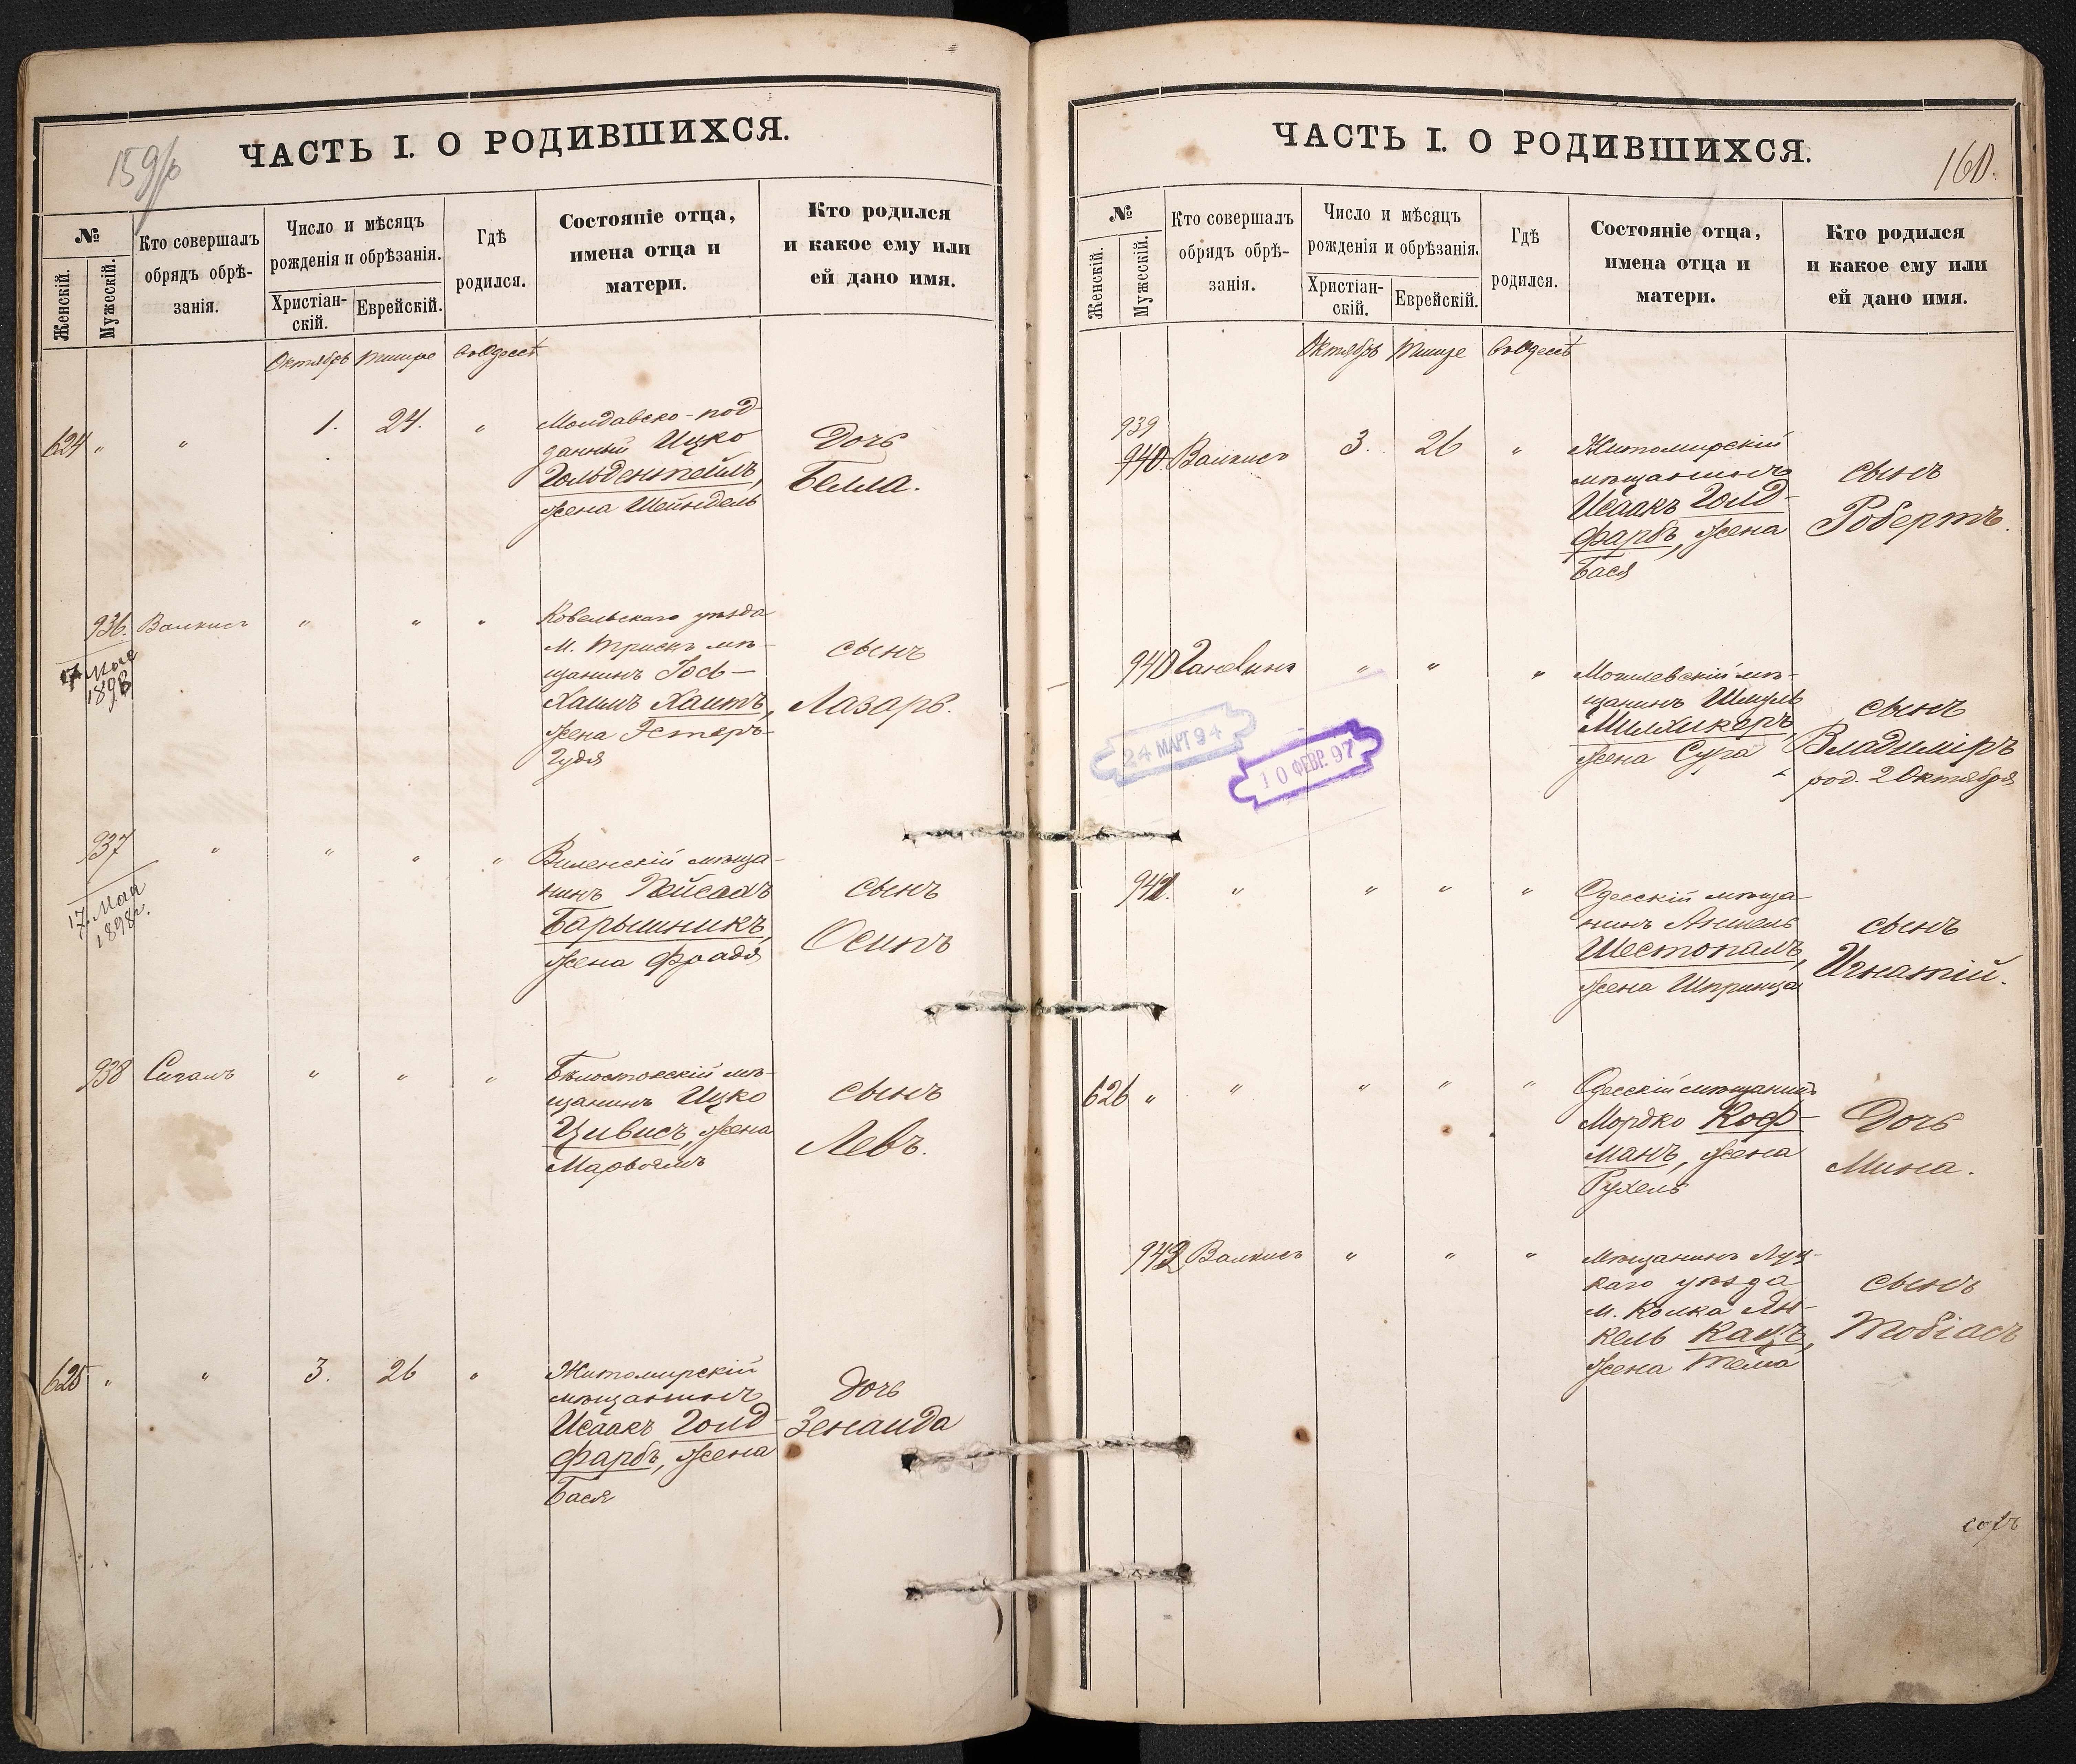 159/б
ЧАСТЬ I. О РОДИВШИХСЯ.
№
Женскій.
Мужескій.
Кто совершалъ
обрядъ обрѣ-
занія.
Число и мѣсяцъ
рожденія и обрѣзанія.
Христіан-
скій.
Еврейскій.
Гдѣ
родился.
Состояніе отца,
имена отца и
матери.
Кто родился
и какое ему или
ей дано имя.
Октябрь Тишре ВъОдессѣ
624 " " 1. 24. "
Молдавско-под-
данный Ицко
Гольдентейлъ,
жена Шейндель
Дочь
Белла.
936. Валкисъ " " "
17 Мая
1898
Ковельскаго уѣзда
М. Трискъ мѣ-
щанинъ Іось-
Хаимъ Хаитъ,
жена Эстеръ-
Гудя
сынъ
Лазарь.
937 " " " "
17. Мая
1898г.
Виленскій мѣща-
нинъ Пейсахъ
Барышникъ,
жена Фрадя
сынъ
Осипъ
938 Сигалъ " " "
Бѣлостокскій мѣ-
щанинъ Ицко
Цивисъ, жена
сынъ
Левъ.
625 " " 3. 26 "
Житомирскій
мѣщанинъ
Исаакъ Голд-
фарбъ, жена
Бася
Дочь
Зенаида
ЧАСТЬ I. О РОДИВШИХСЯ.
160.
№
Женскій.
Мужескій.
Кто совершалъ
обрядъ обрѣ-
занія.
Число и мѣсяцъ
рожденія и обрѣзанія.
Христіан-
скій.
Еврейскій.
Гдѣ
родился.
Состояніе отца,
имена отца и
матери.
Кто родился
и какое ему или
ей дано имя.
Октябрь Тишре ВъОдессѣ
939
940 Валкисъ 3. 26 "
Житомирскій
мѣщанинъ
Исаакъ Голд-
фарбъ, жена
Бася
сынъ
Робертъ.
940 " " "
Могилевскій мѣ-
щанинъ Шмуль
Милликеръ,
жена Сура
сынъ
Владиміръ
род. 2 Октября
24 МАРТ 94
10 ФЕВР. 97
941. " " " "
Одесскій мѣща-
нинъ Аншель
Шестопалъ,
жена Шпринца
сынъ
Игнатій.
626 " " " " "
Одесскій мѣщанинъ
Мордко Коф-
манъ, жена
Рухель
Дочь
Мина.
942 Валкисъ " " "
Мѣщанинъ Луц-
каго уѣзда
м. Колка Ян-
кель Кацъ,
жена Тема
сынъ
Тобіасъ